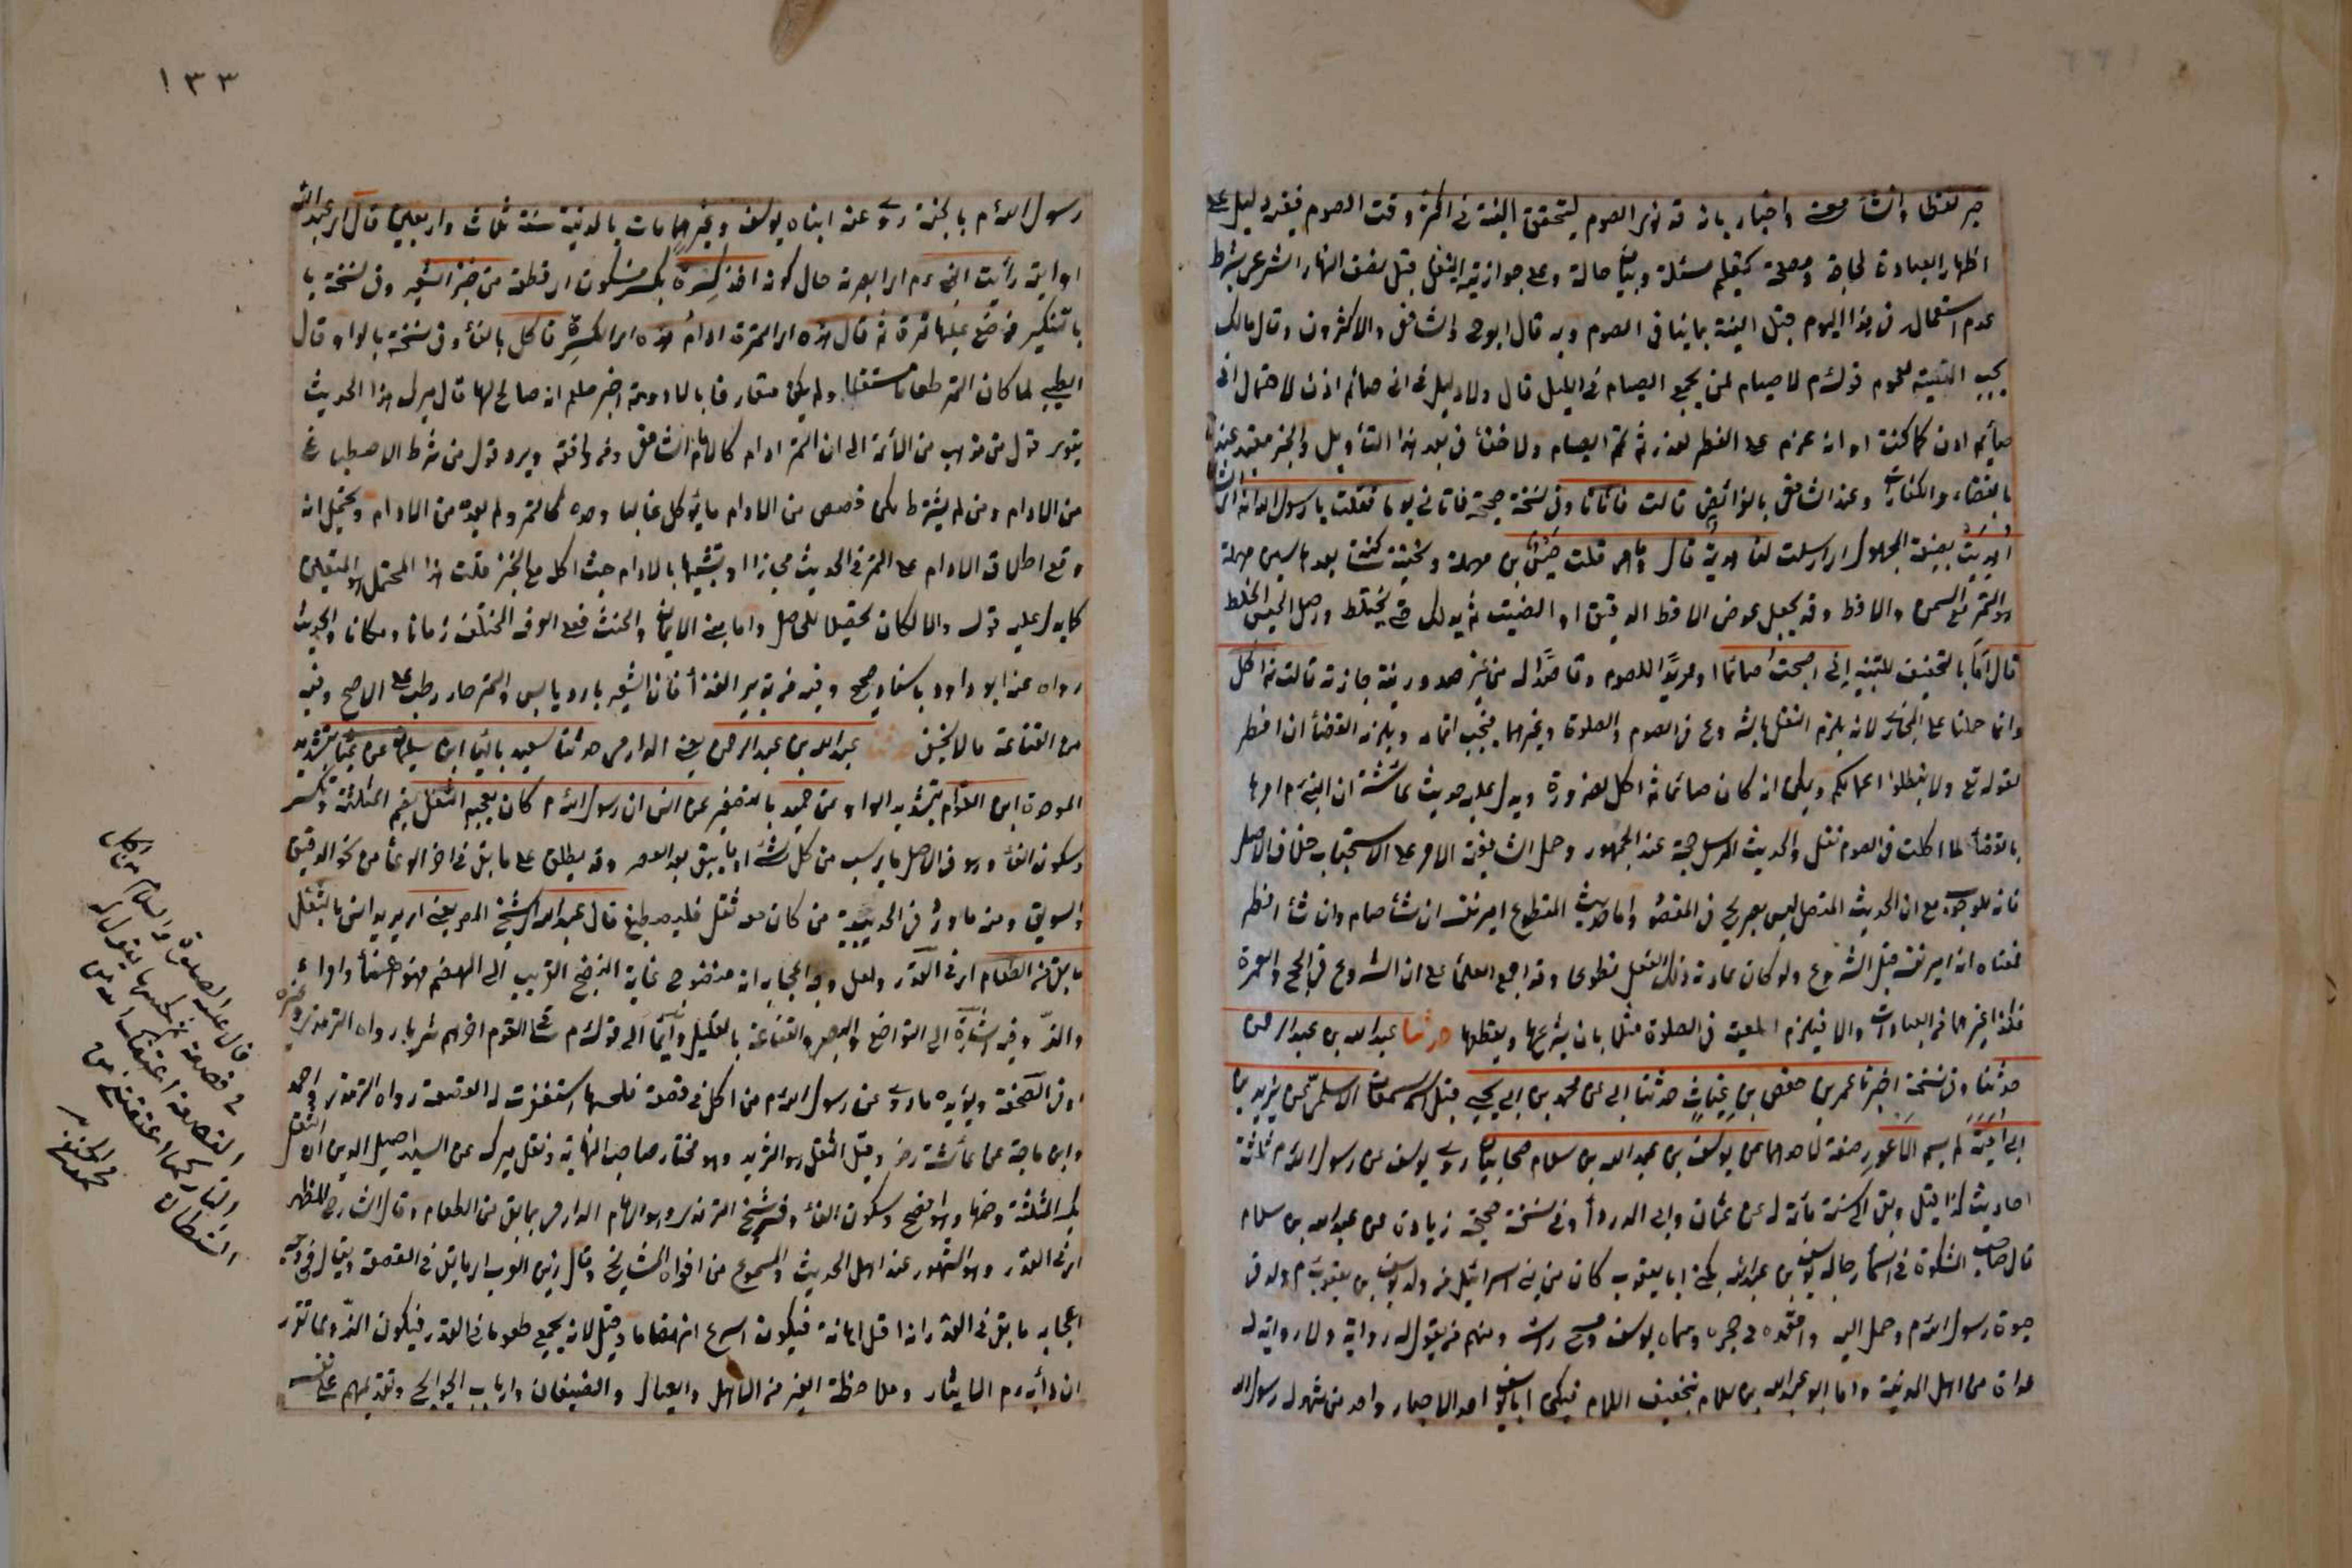 خبر لفظا وانشاء معنى واخبار بانه قد نوى الصوم ليتحقق النية في اكثر وقت الصوم ففيه دليل على
اظهار العبادة لحاجة ومصلحة كتعليم مسئلة وبيان حالة وعلى جواز نية النفل قبل نصف النهار الشرعي بشرط
عدم استعمال في هذا اليوم قبل النية بما ينافي الصوم وبه قال ابو ح والشافعي والاكثرون وقال مالك
يجب التبييت لعموم قوله م لا صيام لمن لم يجمع الصيام في الليل قال ولا دليل في اني صائم اذن لاحتمال اني
صائم اذن كما كنت او انه عزم على الفطر لعذر ثم تمم الصيام ولا خفأ في بعد هذا التأويل والخبر مقيد عندنا
بالقضاء والكفارات وعند الشافعي بالفرائض قالت فاتانا وفي نسخة صحيحة فاتاني يوما فقلت يا رسول الله انه
اهديت بصيغة المجهول اى ارسلت لنا هدية قال وما هي قلت حيس بحاء مهملة وتحتية ساكنة بعدها سين مهملة
هو التمر مع السمن والاقط وقد يجعل عوض الاقط الدقيق او الفتيت ثم يدلك حتى يختلط واصل الحيس الخلط
قال اما بالتخفيف للتنبيه اني اصبحت صائما اى مريدا للصوم وقاصدا له من غير صدور نية جازمة قالت ثم اكل
وانما حملنا على المجاز لانه يلزم النفل بالشروع في الصوم والصلوة وغيرهما فيجب اتمامه ويلزمه القضأ ان افطر
لقوله تع ولا تبطلوا اعمالكم ويمكن انه كان صائما ثم اكل لضرورة ويدل عليه حديث عائشة ان النبي م امرها
بالقضأ لما اكلت في الصوم نفل والحديث المرسل حجة عند الجمهور وحمل الشافعية الامر على الاستحباب خلاف الاصل
فانه للوجوب مع ان الحديث المتصل ليس بصريح في المقصود واما حديث المتطوع امير نفسه ان شأ صام وان شأ افطر
فمعناه انه امير نفسه قبل الشروع ولو كان عادته ذلك الفعل تطوعا وقد اجمع العلمأ على ان الشروع في الحج والعمرة
فكذا غيرهما من العبادات والا فيلزم اللعب في الصلوة مثلا بان يشرعها ويقطعها حدثنا عبد الله بن عبد الرحمن
حدثنا وفي نسخة اخبرنا عمر بن حفص بن غياث حدثنا ابي عن محمد بن ابي يحيى قيل اسمه سمعان الاسلمي عن يزيد بن
ابي امية لم يسم الاعور صفة لاحدهما عن يوسف بن عبد الله بن سلام صحابيان روى يوسف عن رسول الله م ثلاثة
احاديث كذا قيل وبقي الى سنة مائة له عن عثمان وابي الدردأ وفي نسخة صحيحة زيادة عن عبد الله بن سلام
قال صاحب المشكوة في اسمأ رجاله يوسف بن عبد الله يكنى ابا يعقوب كان من بني اسرائيل من ولد يوسف بن يعقوب م ولد في
حيوة رسول الله م وحمل اليه واقعده في حجره وسماه يوسف ومسح رأسه ومنهم من يقول له رواية ولا رواية له
عداده من اهل المدينة واما ابو عبد الله بن سلام بتخفيف اللام فيكنى ابا يوسف احد الاحبار واحد من شهد له رسول الله
١٣٣
رسول الله م بالجنة روى عنه ابناه يوسف وغيرهما مات بالمدينة سنة ثلاث واربعين قال اى عبد الله
او ابنه رأيت النبي م اى ابصرته حال كونه اخذ كسرة بكسر فسكون اى قطعة من خبز الشعير وفي نسخة با
بالتنكير فوضع عليها تمرة ثم قال هذه اى التمرة ادام هذه اى الكسرة فاكل بالفأ وفي نسخة بالواو قال
الطيبي لما كان التمر طعاما مستقلا ولم يكن متعارفا بالادومة اخبر صلعم انه صالح لها قال ميرك هذا الحديث
يقوى قول من ذهب من الأئمة الى ان التمر ادام كالامام الشافعي ومن وافقه ويرد قول من شرط الاصطباغ
من الادام ومن لم يشترط لكن خصص من الادام ما يؤكل غالبا وحده كالتمر ولم يعده من الادام ويحتمل انه
وقع اطلاق الادام على التمر في الحديث مجازا او تشبيها بالادام حيث اكل مع الخبز قلت هذا المحتمل هو المتعين
كما يدل عليه قوله والا لكان تحصيلا للحاصل واما مبنى الايمان والحنث فعلى العرف المختلف زمانا ومكانا والحديث
رواه عنه ابو داود باسناد صحيح وفيه من تدبير الغذأ فان الشعير بارد يابس والتمر حار رطب على الاصح وفيه
من القناعة ما لا يخفى حدثنا عبد الله بن عبد الرحمن يعني الدارمي حدثنا سعيد بالياء ابن سليمان عن عباد بتشديد
الموحدة ابن العوام بتشديد الواو عن حميد بالتصغير عن انس ان رسول الله م كان يعجبه الثفل بضم المثلثة وتكسر
وسكون الفأ وهو في الاصل ما يرسب من كل شئ او ما يبقى بعد العصر وقد يطلق على ما بقي في اخر الوعأ من نحو الدقيق
والسويق ومنه ما ورد في الحديبية من كان معه ثفل فليصطبغ قال عبد الله الشيخ المص يعني اى يريد انس بالثفل
ما بقي من الطعام اى في القدر ولعل وجه اعجابه انه منضوج غاية النضج القريب الى الهضم فهو اهنأ وامرأ
والذ وفيه اشارة الى التواضع والصبر والقناعة بالقليل وايمأ الى قوله م ساقي القوم اخرهم شربا رواه الترمذي وغيره
او في الصحفة ويؤيده ما روى عن رسول الله م من اكل في قصعة فلحسها استغفرت له القصعة رواه الترمذي واحمد
وابن ماجة عن عائشة رض وقيل الثفل هو الثريد وهو مختار صاحب النهاية ونقل ميرك عن السيد اصيل الدين ان الثفل
بكسر المثلثة وضمها وهو افصح وسكون الفأ وفسره شيخ الترمذي وهو الامام الدارمي بما بقي من الطعام وقال الشارح المظهر
اى في القدر وهو المشهور عند اهل الحديث والمسموع من افواه المشايخ وقال زين العرب اى ما بقي في القصعة ويقال في وجه
اعجابه ما بقي في القدر انه اقل دهانة فيكون اسرع انهضاما وقيل لانه يجمع طعوما في القدر فيكون الذ وما تقرر
ان دأبه م الايثار وملاحظة الغير من الاهل والعيال والضيفان وارباب الحوايج وتقديمهم على نفسه
قال عليه الصلوة والسلام من اكل
في قصعة ثم لحسها تقول له
القصعة اعتقك الله من
النار كما اعتقتني من
الشيطان